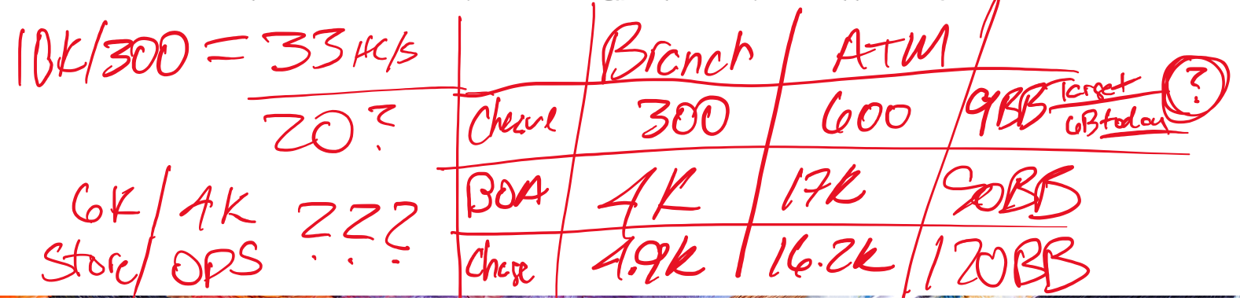 10K/300 = 33 HC/S
20?
6K / 4K ???
Store/ OPS
Branch ATM
300 600 9BB Target
6B today
?
BOA 4K 17K 90BB
Chase 4.9K 16.2K 120BB